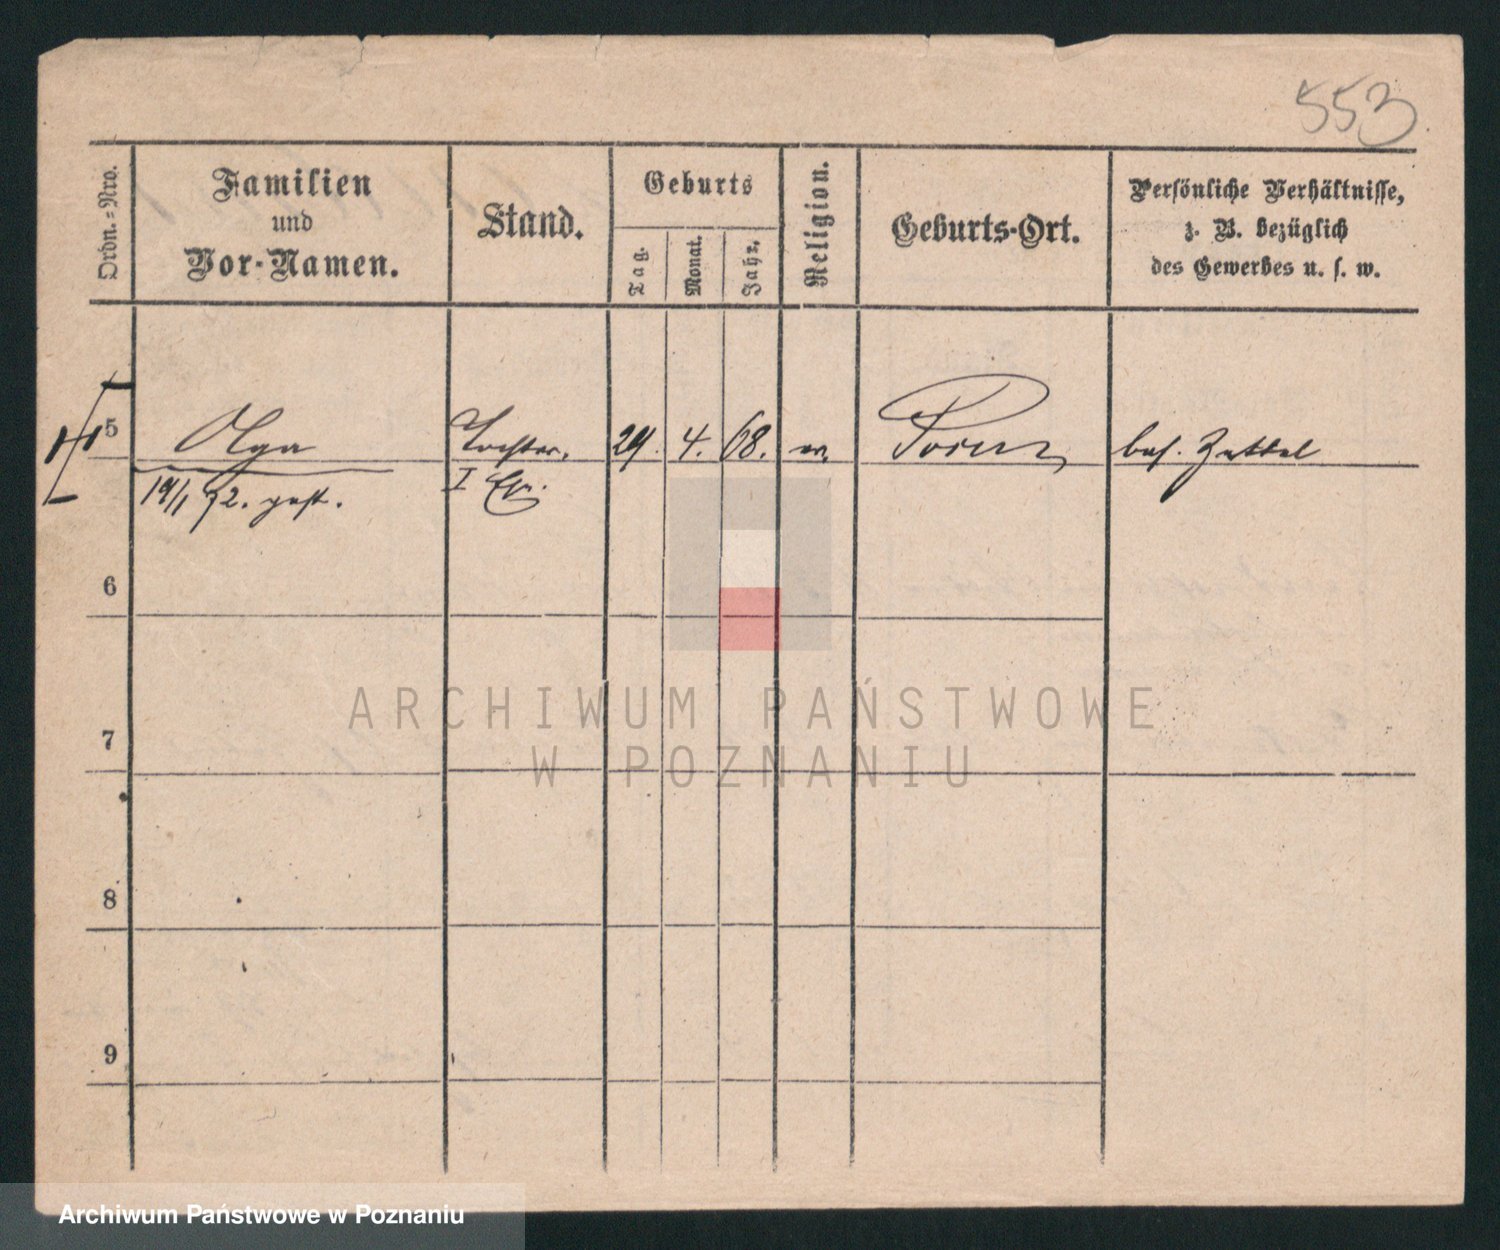 553
Ordn.=Nro.
Familien
und
Vor-Namen.
Stand.
Geburts
Tag.
Monat.
Jahr.
Religion.
Geburts-Ort.
Persönliche Verhältnisse,
z. B. bezüglich
des Gewerbes u. s. w.
5 Olga Tochter. 29. 4. 68. ev. bes. Zettel
19/1 72. gest. I Ehe.
6
7
8
9
ARCHIWUM PAŃSTWOWE
W POZNANIU
Archiwum Państwowe w Poznaniu